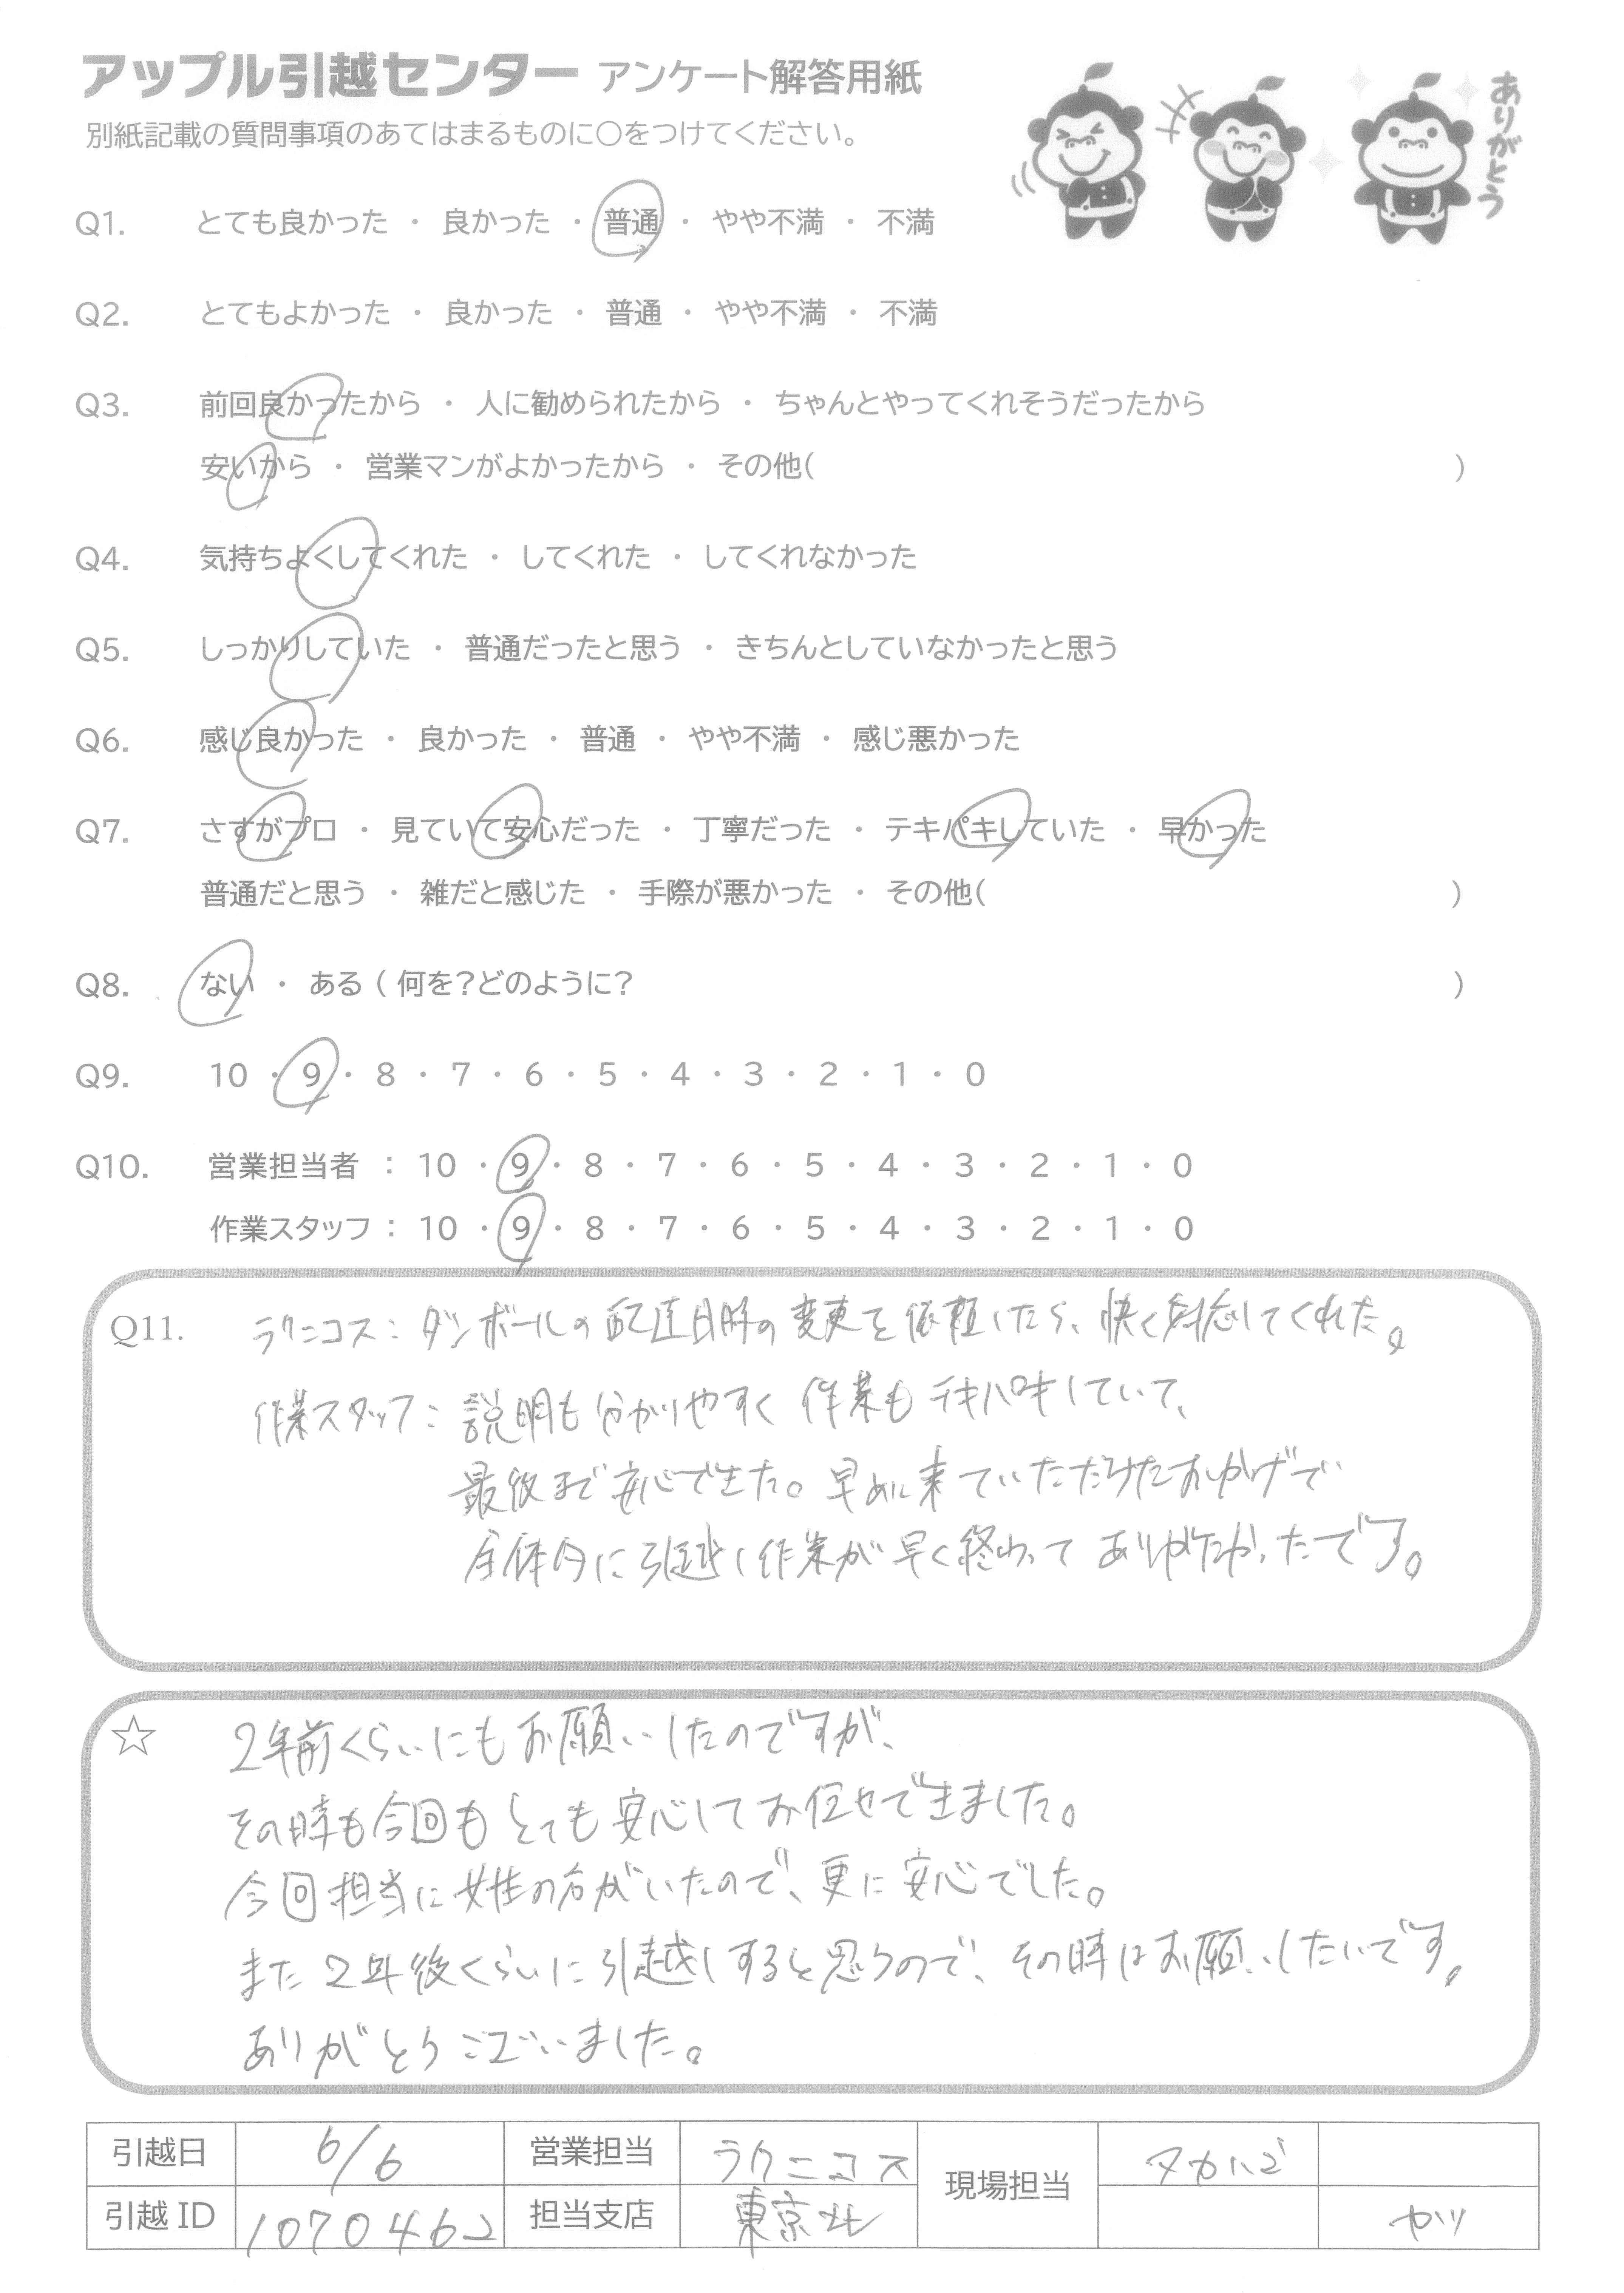 アップル引越センター アンケート解答用紙
別紙記載の質問事項のあてはまるものに○をつけてください。
ありがとう
Q1. とても良かった ・ 良かった ・ 普通 ・ やや不満 ・ 不満
Q2. とてもよかった ・ 良かった ・ 普通 ・ やや不満 ・ 不満
Q3. 前回良かったから ・ 人に勧められたから ・ ちゃんとやってくれそうだったから
安いから ・ 営業マンがよかったから ・ その他( )
Q4. 気持ちよくしてくれた ・ してくれた ・ してくれなかった
Q5. しっかりしていた ・ 普通だったと思う ・ きちんとしていなかったと思う
Q6. 感じ良かった ・ 良かった ・ 普通 ・ やや不満 ・ 感じ悪かった
Q7. さすがプロ ・ 見ていて安心だった ・ 丁寧だった ・ テキパキしていた ・ 早かった
普通だと思う ・ 雑だと感じた ・ 手際が悪かった ・ その他( )
Q8. ない ・ ある ( 何を?どのように? )
Q9. 10 ・ 9 ・ 8 ・ 7 ・ 6 ・ 5 ・ 4 ・ 3 ・ 2 ・ 1 ・ 0
Q10. 営業担当者 : 10 ・ 9 ・ 8 ・ 7 ・ 6 ・ 5 ・ 4 ・ 3 ・ 2 ・ 1 ・ 0
作業スタッフ : 10 ・ 9 ・ 8 ・ 7 ・ 6 ・ 5 ・ 4 ・ 3 ・ 2 ・ 1 ・ 0
Q11. ラクニコス: ダンボールの配達日時の変更を依頼したら、快く対応してくれた。
作業スタッフ: 説明も分かりやすく 作業もテキパキしていて、
最後まで安心できた。早めに来ていただけたおかげで
全体的に引越し作業が早く終わって ありがたかったです。
☆ 2年前くらいにもお願いしたのですが、
その時も今回もとても安心してお任せできました。
今回担当に女性の方がいたので、更に安心でした。
また2年後くらいに引越しすると思うので、その時はお願いしたいです。
ありがとうございました。
引越日 6/6 営業担当 ラクニコス 現場担当
引越 ID 1070462 担当支店 東京北